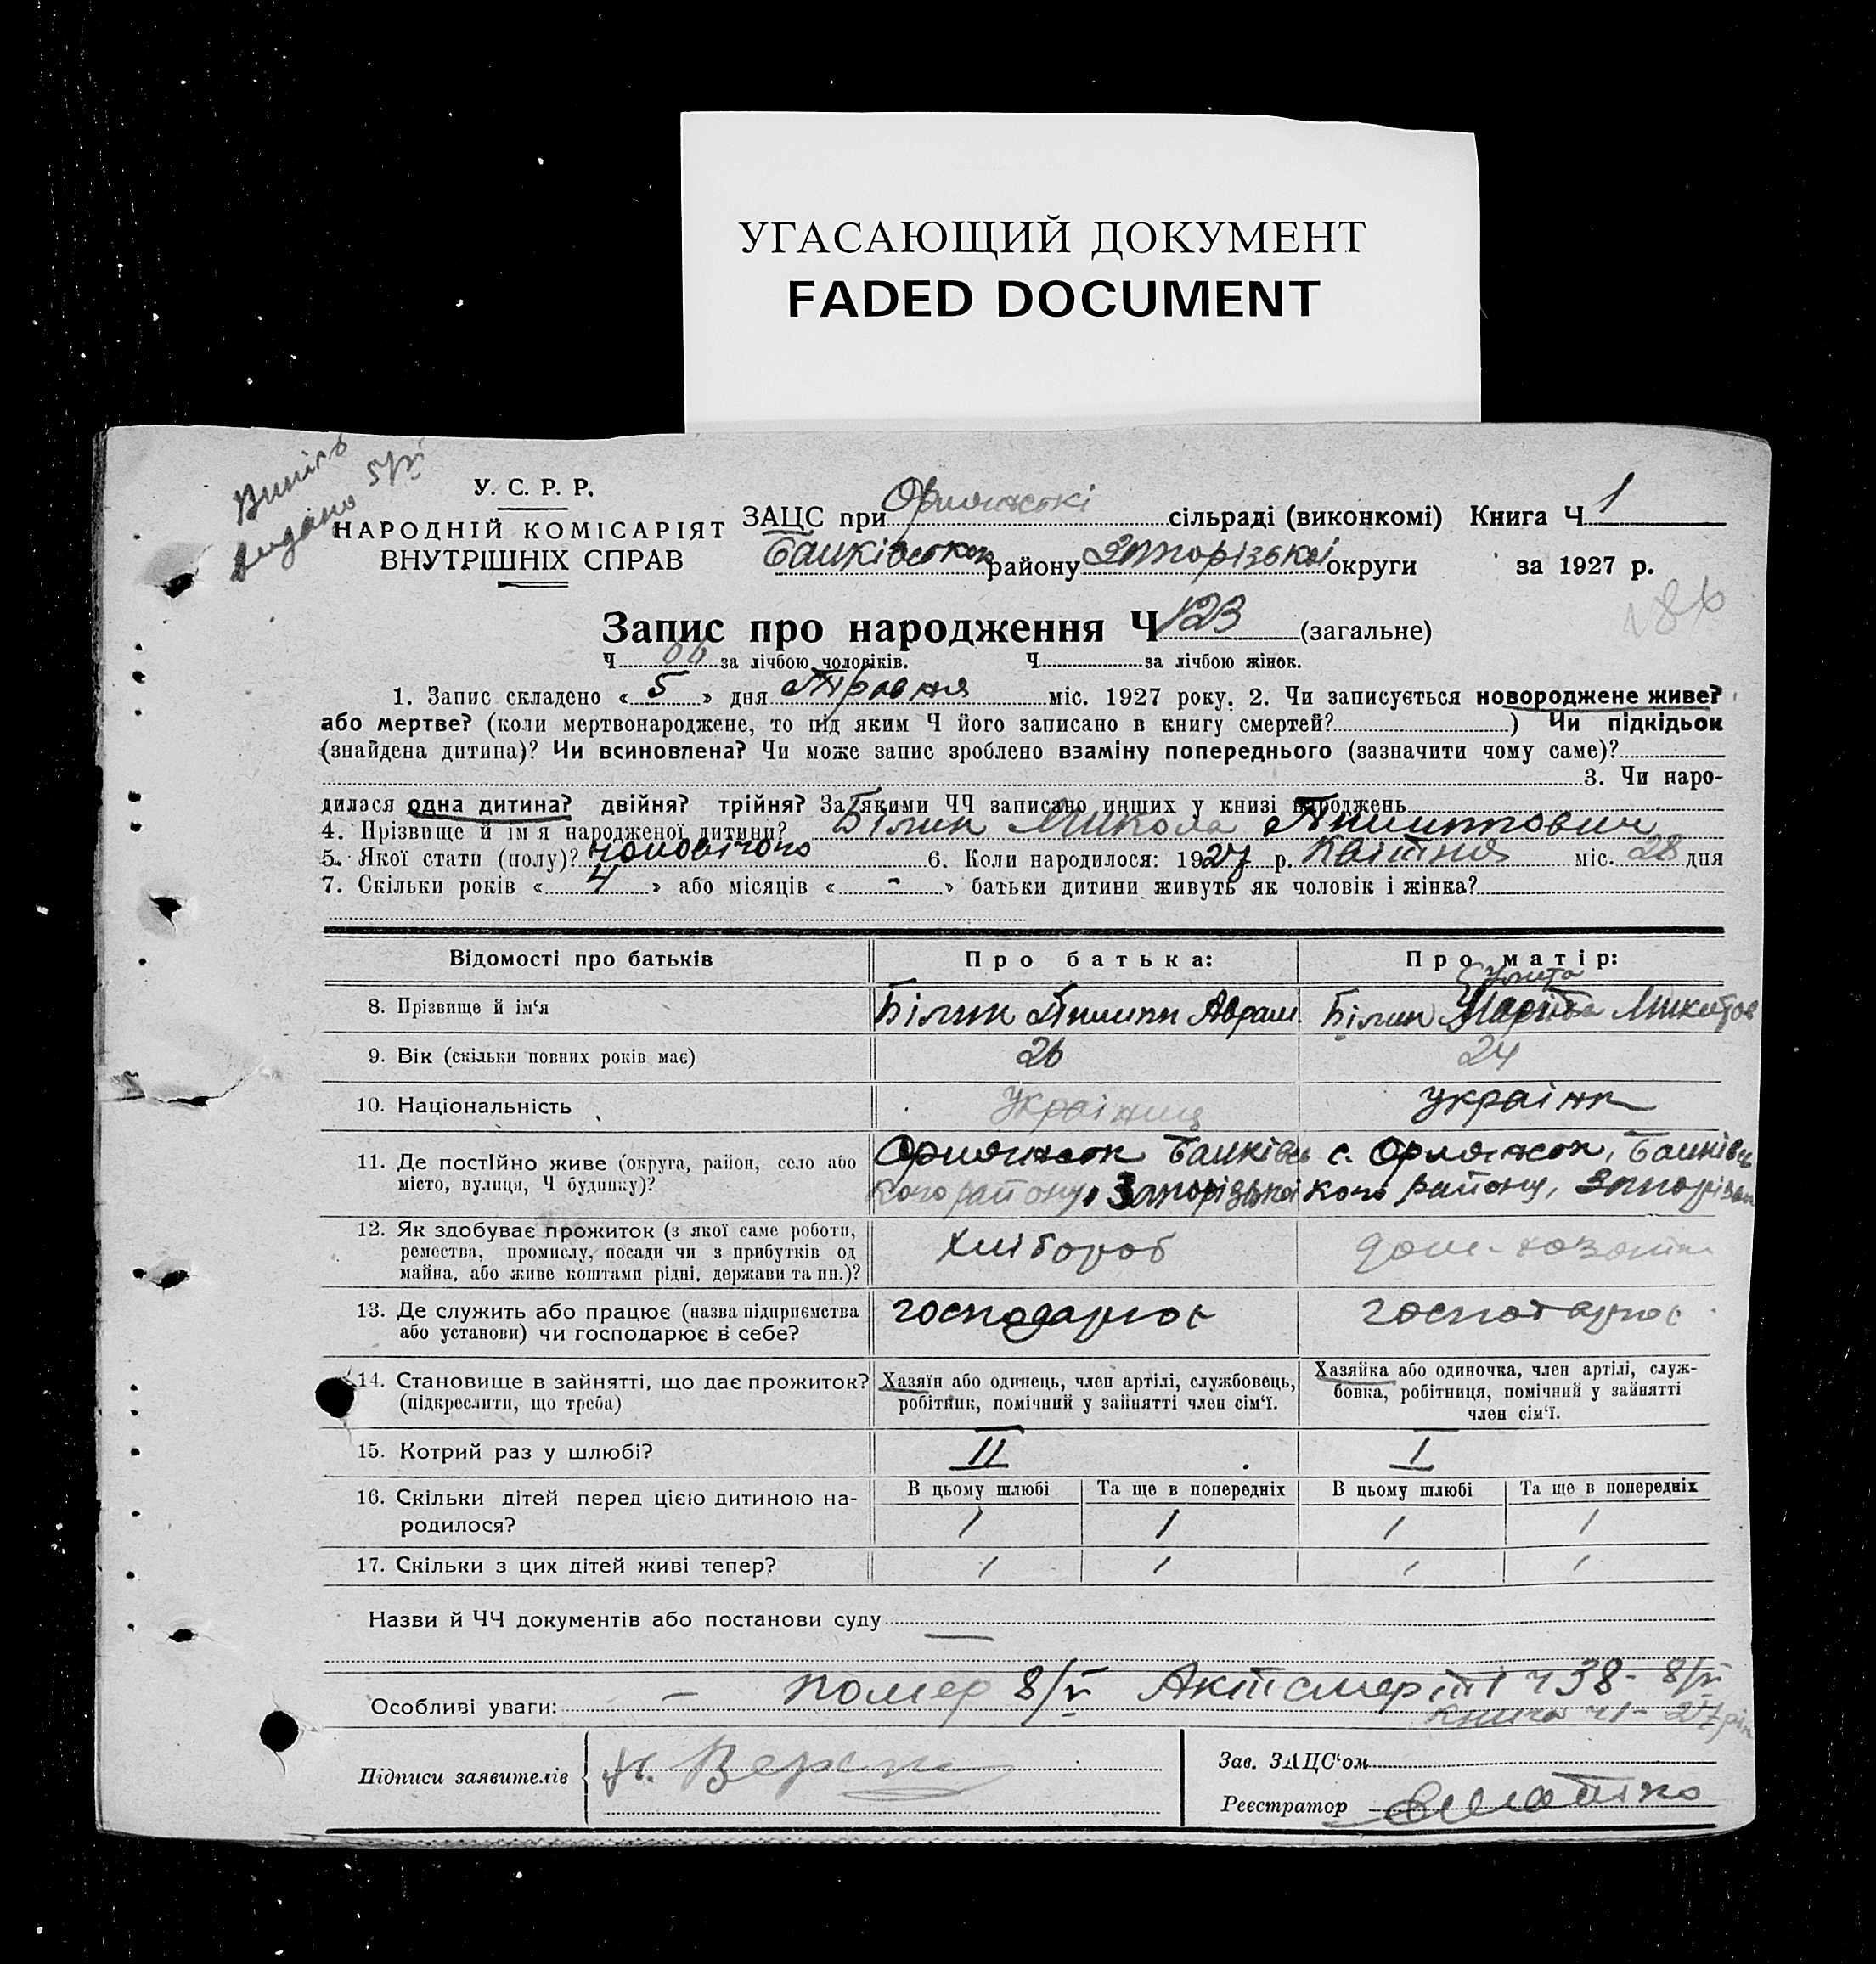 УГАСАЮЩИЙ ДОКУМЕНТ
FADED DOCUMENT
Випись
видано 5/VI
У. С. Р. Р.
НАРОДНІЙ КОМІСАРІЯТ
ВНУТРІШНІХ СПРАВ
ЗАЦС при Орлянські сільраді (виконкомі) Книга Ч 1
району Запорізької округи за 1927 р.
186
Запис про народження Ч 123 (загальне)
Ч 66 за лічбою чоловіків. Ч за лічбою жінок.
1. Запис складено « 5 » дня Травня міс. 1927 року. 2. Чи записується новороджене живе?
або мертве? (коли мертвонароджене, то під яким Ч його записано в книгу смертей? ) Чи підкідьок
(знайдена дитина)? Чи всиновлена? Чи може запис зроблено взаміну попереднього (зазначити чому саме)?
3. Чи наро-
дилася одна дитина? двійня? трійня? За якими ЧЧ записано инших у книзі народжень
4. Прізвище й ім'я народженої дитини? Білик Микола Пилипович
5. Якої стати (полу)? чоловічого 6. Коли народилося: 1927 р. Квітня міс. 28 дня
7. Скільки років « 4 » або місяців « - » батьки дитини живуть як чоловік і жінка?
Відомості про батьків Про батька: Про матір:
8. Прізвище й ім'я Білик Пилип Аврам Білик Микитов
9. Вік (скільки повних років має) 26 24
10. Національність Українец українк
11. Де постійно живе (округа, район, село або Орлянськ с. Орлянськ,
місто, вулиця, Ч будинку)? кого району, Запорізької кого району, Запорізьк
12. Як здобуває прожиток (з якої саме роботи, Хлібороб дом-хозяйк
ремества, промислу, посади чи з прибутків од
майна, або живе коштами рідні, держави та ин.)?
13. Де служить або працює (назва підприємства господарює господарює
або установи) чи господарює в себе?
14. Становище в зайнятті, що дає прожиток? Хазяїн або одинець, член артілі, службовець, Хазяйка або одиночка, член артілі, служ-
(підкреслити, що треба) робітник, помічний у зайнятті член сім'ї. бовка, робітниця, помічний у зайнятті
член сім'ї.
15. Котрий раз у шлюбі? II I
16. Скільки дітей перед цією дитиною на- В цьому шлюбі Та ще в попередніх В цьому шлюбі Та ще в попередніх
родилося? 1 1 1 1
17. Скільки з цих дітей живі тепер? 1 1 1 1
Назви й ЧЧ документів або постанови суду —
Особливі уваги: — помер 8/V Акт смерті ч 38 - 8/V
Книга ч 1 - 27 рік
Підписи заявителів Зав. ЗАЦС'ом
Реєстратор